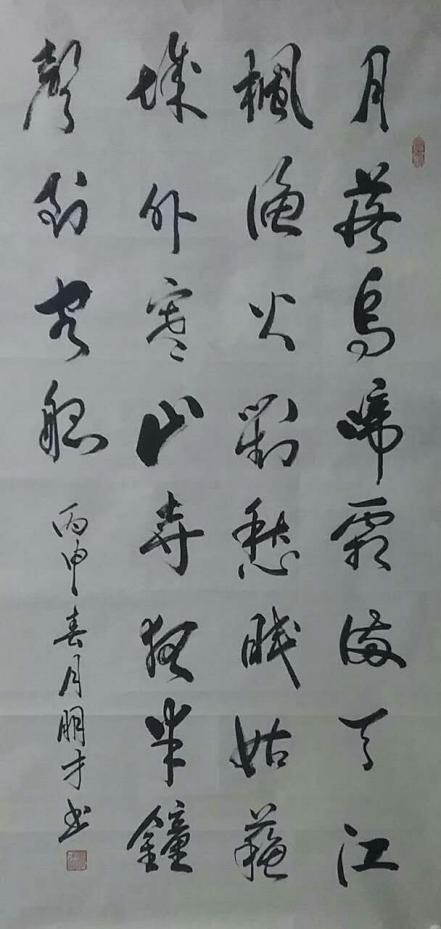 月落烏啼霜滿天江
楓漁火對愁眠姑蘇
城外寒山寺夜半鐘
聲到客船
丙申春月朋才书